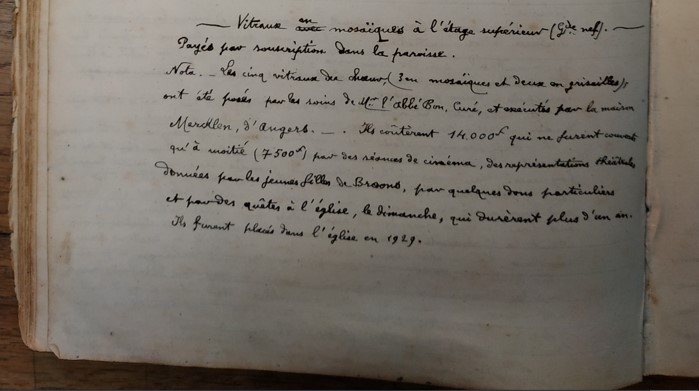 — Vitraux en mosaïques à l'étage supérieur (Gde nef). —
Payés par souscription dans la paroisse.
Nota. — Les cinq vitraux du chœur, (3 en mosaïques et deux en grisailles),
ont été posés par les soins de Mr l'Abbé Bon, Curé, et exécutés par la maison
Mercklen, d'Angers. — . Ils coûtèrent 14.000f qui ne furent couverts
qu'à moitié (7500f) par des séances de cinéma, des représentations théâtrales
données par les jeunes filles de Broons, par quelques dons particuliers
et par des quêtes à l'église, le dimanche, qui durèrent plus d'un an.
Ils furent placés dans l'église en 1929.